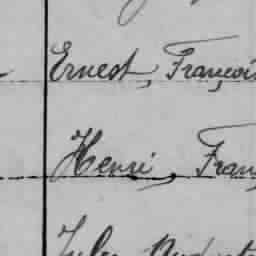 Ernest, François
Henri, Fran
Jules Aug